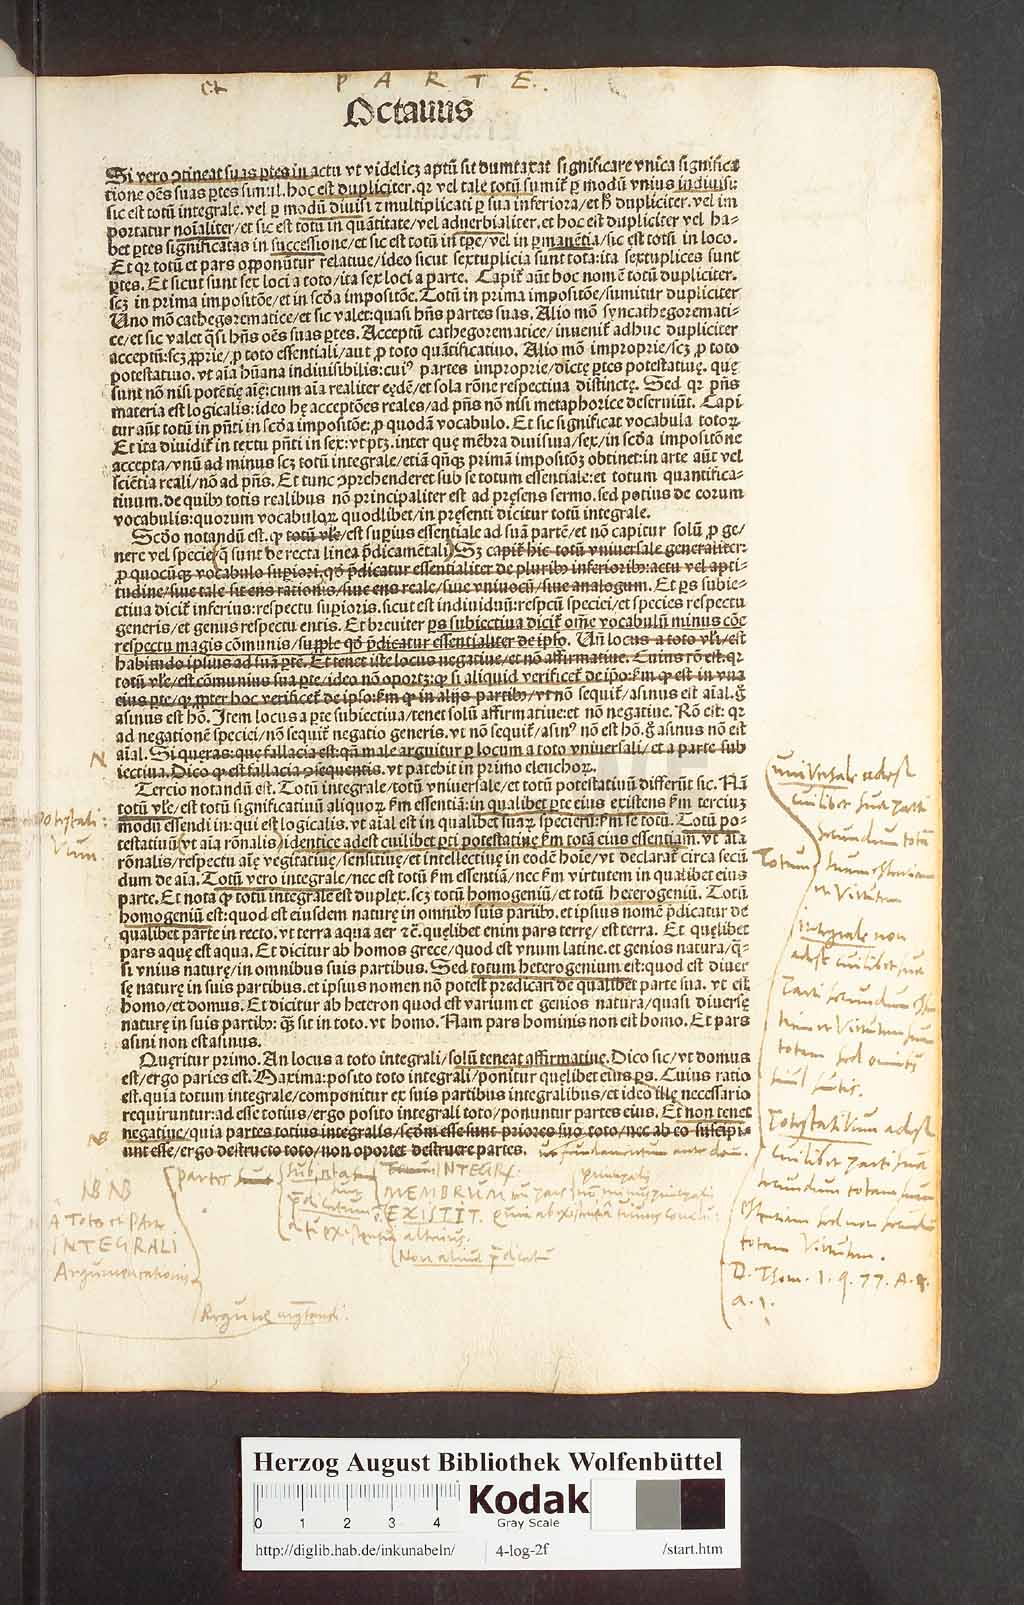 et P A R T E .
Octauus
Si vero ↄtineat suas ꝑtes in actu vt videlicꝫ aptū sit dumtaxat significare vnica significa
tione oēs suas ꝑtes simul. hoc est dupliciter. qꝛ vel tale totū sumit̃ ꝑ modū vnius indiuisi:
sic est totū integrale. vel ꝑ modū diuisi ⁊ multiplicati ꝑ sua inferiora/et h̃ dupliciter. vel im
portatur noīaliter/et sic est totū in quātitate/vel aduerbialiter. et hoc est dupliciter vel ha-
bet ꝑtes significatas in successione/et sic est totū in tꝑe/vel in ꝑmanētia/sic est totū in loco.
Et qꝛ totū et pars opponūtur relatiue/ideo sicut sextuplicia sunt tota: ita sextuplices sunt
ꝑtes. Et sicut sunt sex loci a toto/ita sex loci a parte. Capit̃ aūt hoc nomē totū dupliciter.
scꝫ in prima impositōe/et in scḋa impositōe. Totū in prima impositōe/sumitur dupliciter
Uno mō cathegorematice/et sic valet: quasi hñs partes suas. Alio mō syncathegoremati-
ce/et sic valet q̄si hñs oēs suas ꝑtes. Acceptū cathegorematice/inuenit̃ adhuc dupliciter
acceptū: scꝫ ꝓprie/ꝓ toto essentiali/aut ꝓ toto quātificatiuo. Alio mō improprie/scꝫ ꝓ toto
potestatiuo. vt aīa hūana indiuisibilis: cuiꝰ partes improprie/dictę ꝑtes potestatiuę. quę
sunt nō nisi potētię aīę: cum aīa realiter eędē/et sola rōne respectiua distinctę. Sed qꝛ pñs
materia est logicalis: ideo hę acceptōes reales/ad pñs nō nisi metaphorice deseruiūt. Capi
tur aūt totū in pñti in scḋa impositōe: ꝓ quodā vocabulo. Et sic significat vocabula totoꝝ
Et ita diuidit̃ in textu pñti in sex: vt ptꝫ. inter quę mēbra diuisiua/sex/in scḋa impositōne
accepta/vnū ad minus scꝫ totū integrale/etiā qñqꝫ primā impositōꝫ obtinet: in arte aūt vel
sciētia reali/nō ad pñs. Et tunc ↄprehenderet sub se totum essentiale: et totum quantifica-
tiuum. de quibꝰ totis realibus nō principaliter est ad pręsens sermo. sed potius de eorum
vocabulis: quorum vocabuloꝝ quodlibet/in pręsenti dicitur totū integrale.
Scḋo notandū est. ꝙ totū vl̄e/est suꝑius essentiale ad suā partē/et nō capitur solū ꝓ ge/
nere vel specie(q̄ sunt de recta linea p̄dicamētali) Sꝫ capit̃ hic totū vniuersale generaliter:
ꝓ quocūqꝫ vocabulo suꝑiori. qḋ p̄dicatur essentialiter de pluribꝰ inferioribꝰ: actu vel apti-
tudine/siue tale sit ens rationis/siue ens reale/siue vniuocū/siue analogum. Et ꝑs subie-
ctiua dicit̃ inferius: respectu suꝑioris. sicut est indiuiduū: respcū speciei/et species respectu
generis/et genus respectu entis. Et breuiter ꝑs subiectiua dicit̃ om̄e vocabulū minus cōe
respectu magis cōmunis/supple qḋ p̄dicatur essentialiter de ipso. Uñ locus a toto vl̄i/est
habitudo ipsius ad suā ꝑte. Et tenet iste locus negatiue/et nō affirmatiue. Cuius rō est. qꝛ
totū vl̄e/est cōmunius sua ꝑte/ideo nō oportꝫ: ꝙ si aliquid verificet̃ de ipo: ẜm ꝙ est in vna
eius ꝑte/ꝙ ꝓpter hoc verificet̃ de ipso: ẜm ꝙ in alijs partibꝰ/vt nō sequit̃/asinus est aīal. g̊
asinus est hō. Item locus a ꝑte subiectiua/tenet solū affirmatiue: et nō negatiue. Rō est: qꝛ
ad negationē speciei/nō sequit̃ negatio generis. vt nō sequit̃/asinꝰ nō est hō. g̊ asinus nō est
aīal. Si queras: quę fallacia est: qñ male arguitur ꝑ locum a toto vniuersali/et a parte sub
iectiua. Dico ꝙ est fallacia ↄsequentis. vt patebit in primo elenchoꝝ.
Tercio notandū est. Totū integrale/totū vniuersale/et totū potestatiuū differūt sic. Nā
totū vl̄e/est totū significatiuū aliquoꝝ ẜm essentiā: in qualibet ꝑte eius existens ẜm terciuꝫ
modū essendi in: qui est logicalis. vt aīal est in qualibet suaꝝ specierū: ẜm se totū. Totū po-
testatiuū(vt aīa rōnalis) identice adest cuilibet ꝑti potestatiuę ẜm totā eius essentiam. vt aīa
rōnalis/respectu aīę vegitatiuę/sensitiuę/et intellectiuę in eodē hoīe/vt declarat̃ circa secū
dum de aīa. Totū vero integrale/nec est totū ẜm essentiā/nec ẜm virtutem in qualibet eius
parte. Et nota ꝙ totū integrale est duplex. scꝫ totū homogeniū/et totū heterogeniū. Totū
homogeniū est: quod est eiusdem naturę in omnibꝰ suis partibꝰ. et ipsius nomē p̄dicatur de
qualibet parte in recto. vt terra aqua aer ⁊c̄. quęlibet enim pars terrę/est terra. Et quęlibet
pars aquę est aqua. Et dicitur ab homos grece/quod est vnum latine. et genios natura/q̄-
si vnius naturę/in omnibus suis partibus. Sed totum heterogenium est: quod est diuer
sę naturę in suis partibus. et ipsius nomen nō potest predicari de qualibet parte sua. vt est
homo/et domus. Et dicitur ab heteron quod est varium et genios natura/quasi diuersę
naturę in suis partibꝰ: q̄ꝫ sit in toto. vt homo. Nam pars hominis non est homo. Et pars
asini non est asinus.
Quęritur primo. An locus a toto integrali/solū teneat affirmatiue. Dico sic/vt domus
est/ergo paries est. Maxima: posito toto integrali/ponitur quęlibet eius ꝑs. Cuius ratio
est. quia totum integrale/componitur ex suis partibus integralibus/et ideo illę necessario
requiruntur: ad esse totius/ergo posito integrali toto/ponuntur partes eius. Et non tenet
negatiue/quia partes totius integralis/scḋm esse sunt priores suo toto/nec ab eo suscipi-
unt esse/ergo destructo toto/non oportet destruere partes.
N
potestati:
Vum
NB
NB NB
A Toto et Parte
INTEGRALI
Argumentationis
partes
INTEGR
MEMBRUM
EXISTIT.
Non aliud p̄dicatū
Totum
universale adest
cuilibet suae parti
secundum totā
suam essentiam
et Virtutem
Integrale non
adest cuilibet suae
Parti secundum essen
tiam et Virtutem suam
totam sed omnibus
simul sumtis.
Potestativum adest
Cuilibet parti suae
secundum totam suam
essentiam sed non secundū
totam Virtutem.
D. Thom. 1. q. 77. A.
a. 1.
Herzog August Bibliothek Wolfenbüttel
0 1 2 3 4
Kodak
Gray Scale
http://diglib.hab.de/inkunabeln/ 4-log-2f /start.htm